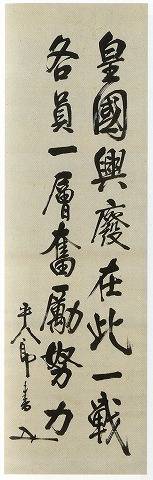 皇國興廢在此一戰
各員一層奮勵努力
平八郎書